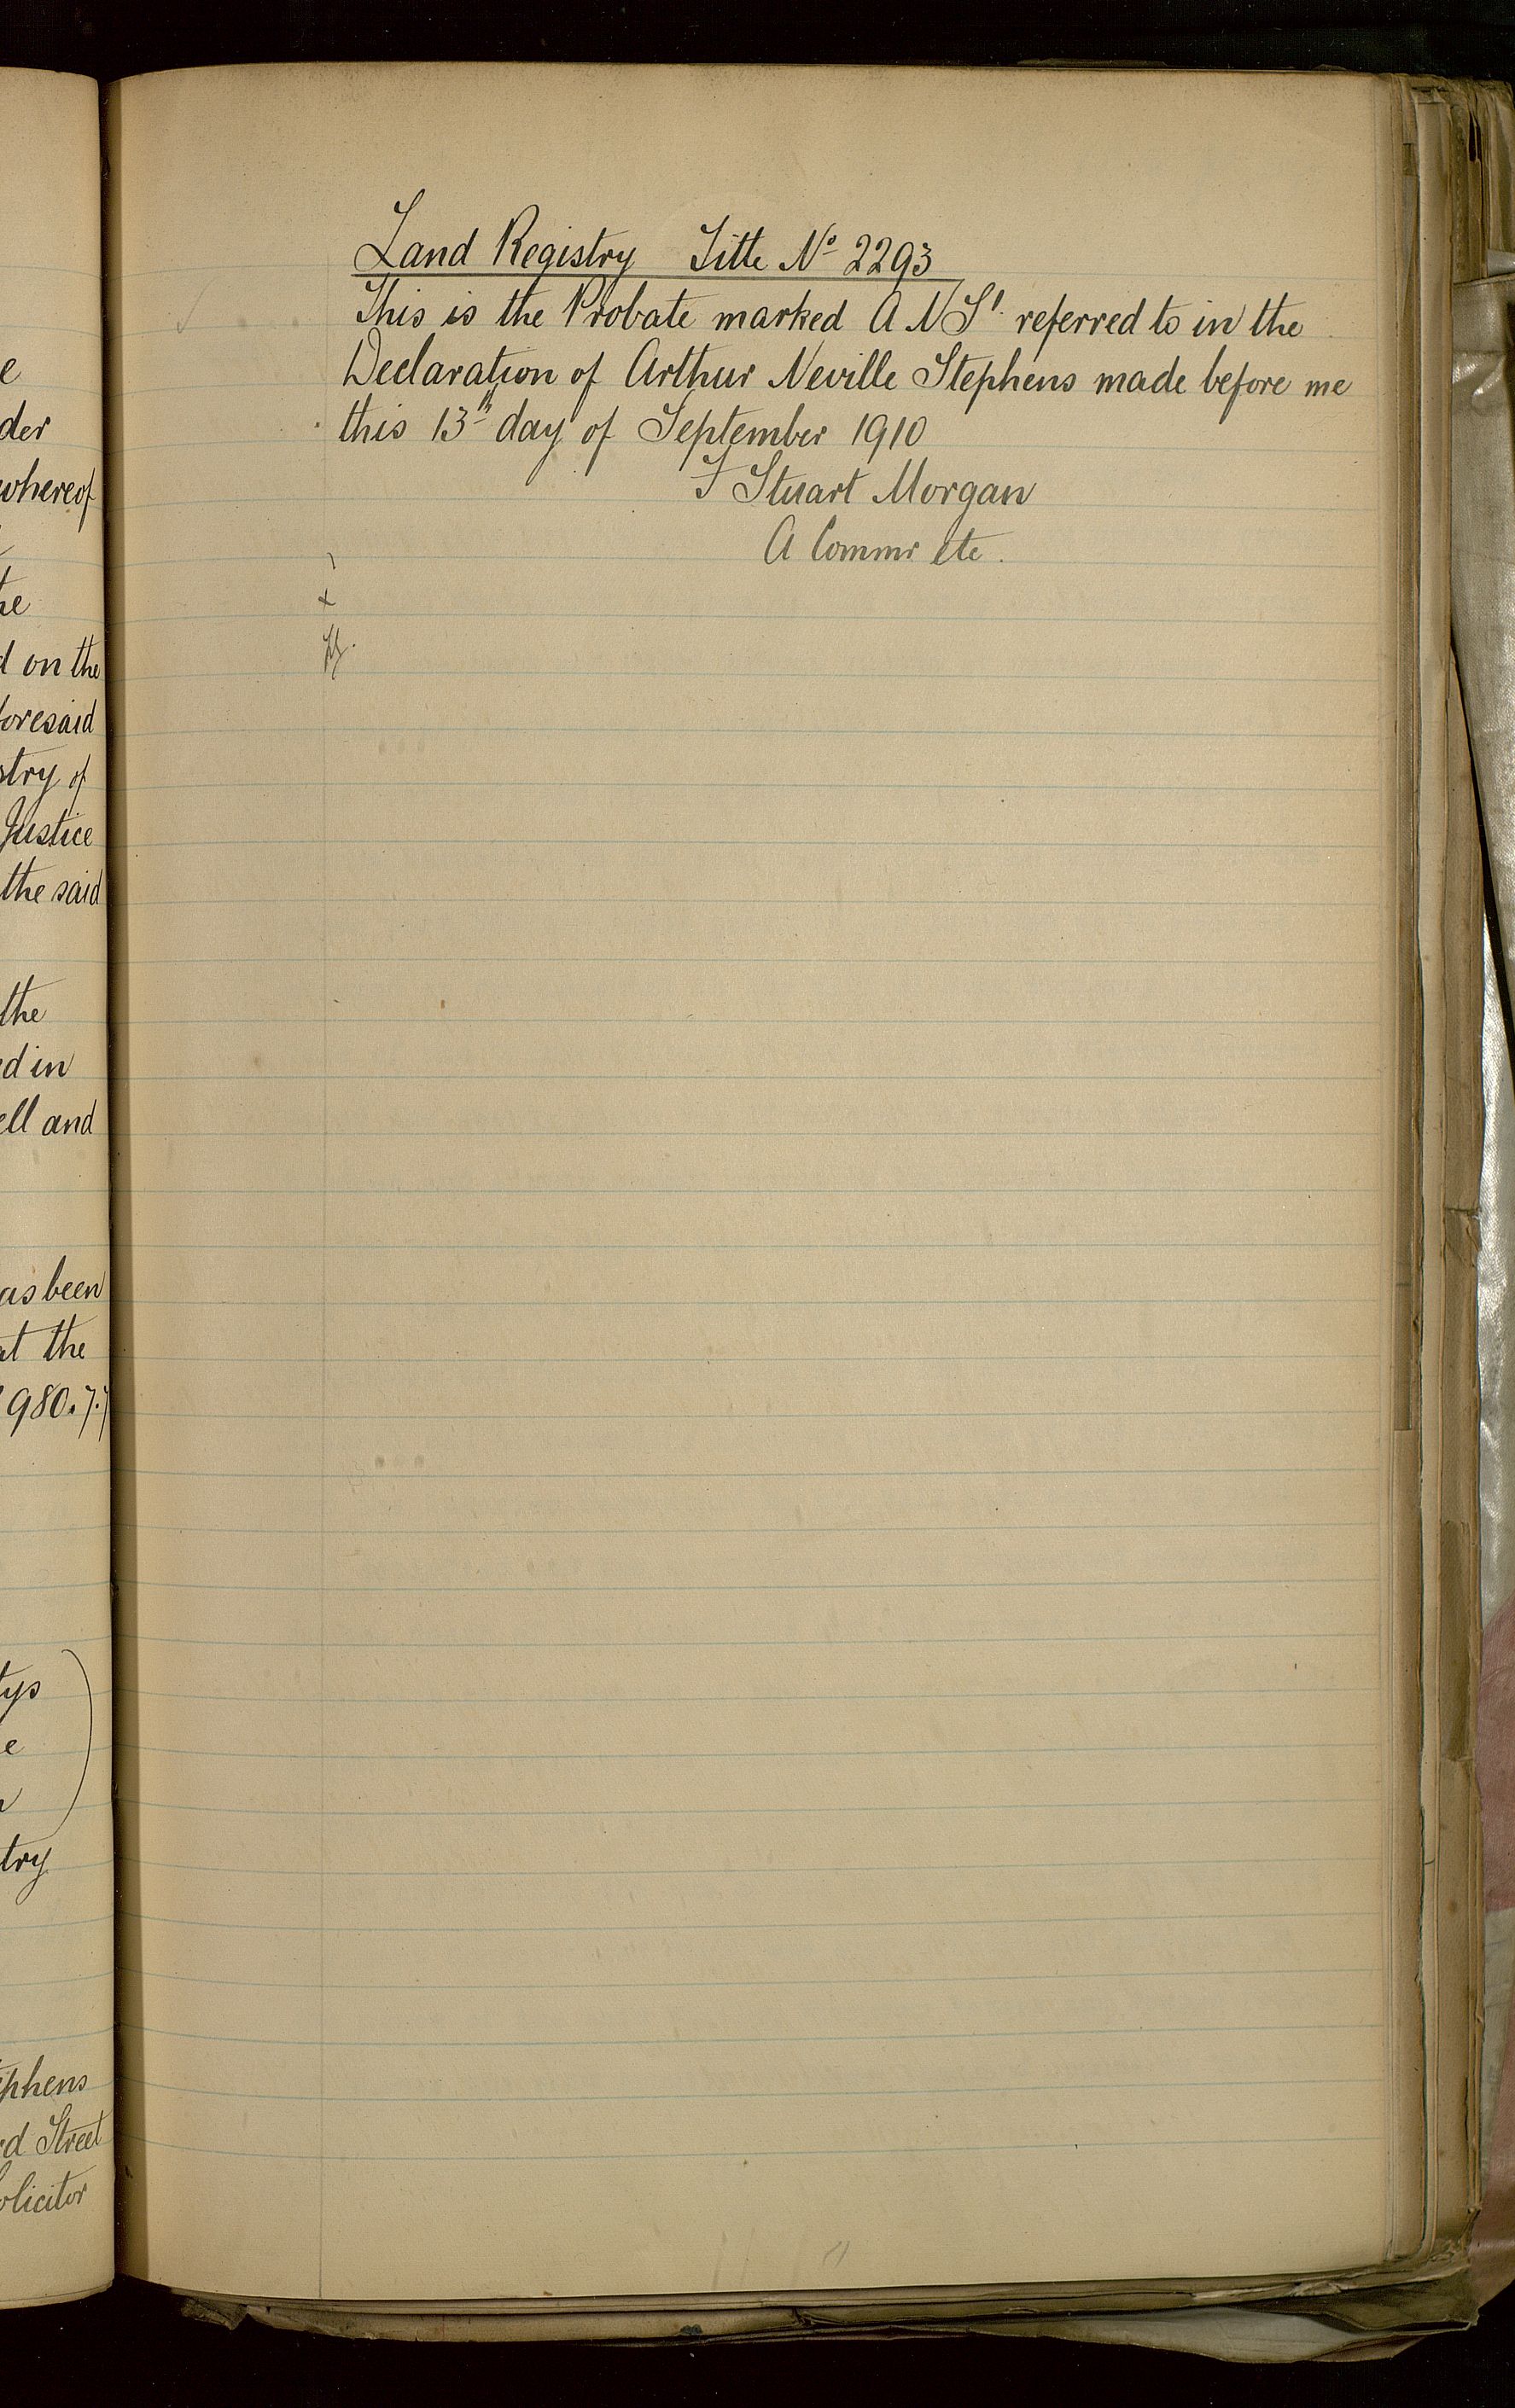 e
der
whereof
he
d on the
foresaid
stry of
Justice
the said
the
ed in
ell and
as been
at the
980.7.7
tys
e
try
ephens
rd Street
olicitor
Land Registry Title No 2293
This is the Probate marked A N S 1. referred to in the
Declaration of Arthur Neville Stephens made before me
this 13th day of September 1910
F Stuart Morgan
A Commr etc.
x